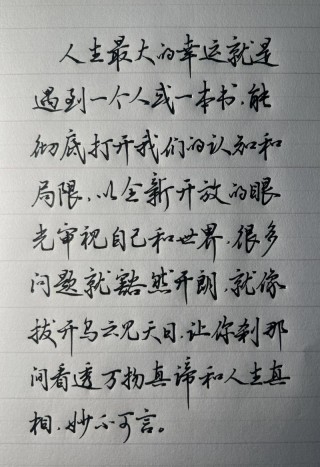 人生最大的幸运就是
遇到一个人或一本书，能
彻底打开我们的认知和
局限，以全新开放的眼
光审视自己和世界，很多
问题就豁然开朗，就像
拨开乌云见天日，让你刹那
间看透万物真谛和人生真
相，妙不可言。